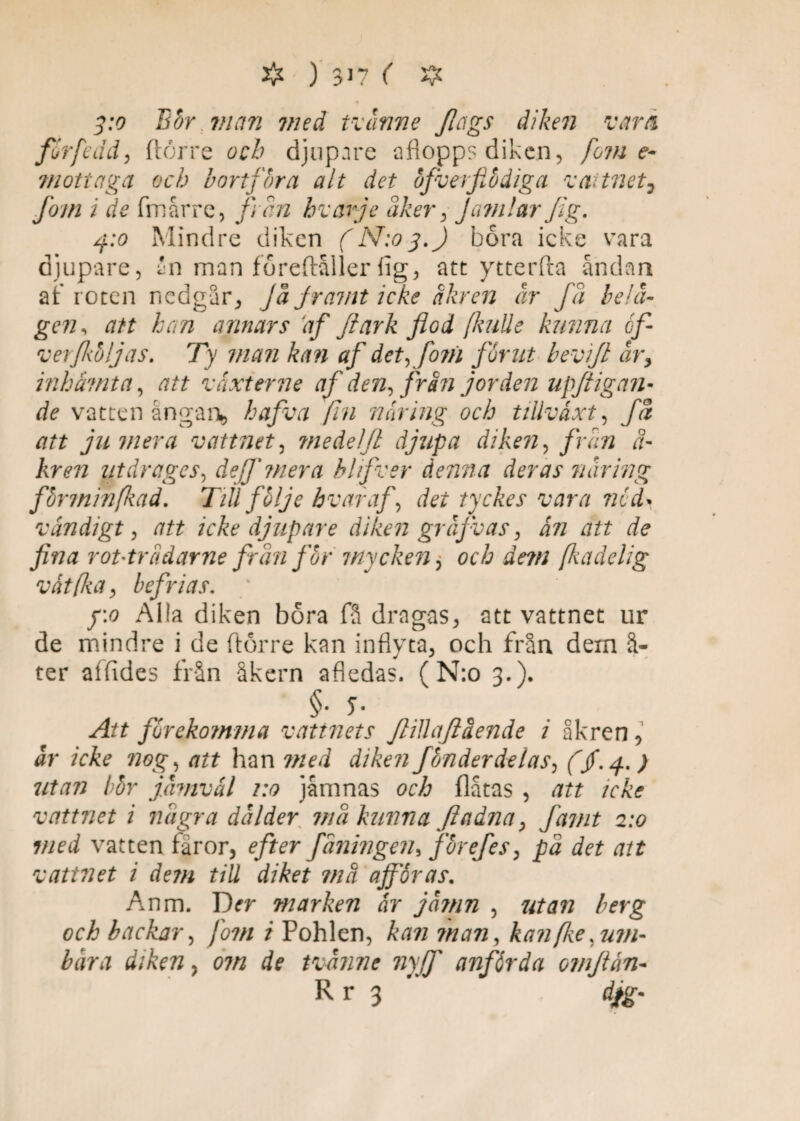 ✲ ) 317 ( ✲
3:o Bör man med tvånne ſlags diken vara
förſedd, ſtörre och djupare aflopps diken, ſom e-
mottaga och bortföra alt det öfverflödiga vattnet,
ſom i de ſmårre, från hvarje åker, ſamlar ſig.
4:o Mindre diken (N:o 3.) böra icke vara
djupare, ån man föreſtåller ſig, att ytterſta åndan
af roten nedgår, ſå framt icke åkren år ſå belå-
gen, att han annars af ſtark flod ſkulle kunna öf-
verſköljas. Ty man kan af det, ſom förut beviſt år,
inhåmta, att våxterne af den, från jorden upſtigan-
de vatten ångan, hafva ſin nåring och tillvåxt, ſå
att ju mera vattnet, medelſt djupa diken, från å-
kren utdrages, deſſ mera blifver denna deras nåring
förminſkad. Till följe hvaraf, det tyckes vara nöd-
våndigt, att icke djupare diken gråfvas, ån att de
fina rot-trådarne från för mycken, och dem ſkadelig
våtſka, befrias.
5:o Alla diken böra få dragas, att vattnet ur
de mindre i de ſtörre kan inflyta, och från dem å-
ter aſſides från åkern afledas. (N:o 3.).
§. 5.
Att förekomma vattnets ſtillaſtående i åkren,
år icke nog, att han med diken ſönderdelas, (ſ. 4.)
utan bör jåmvål 1:o jåmnas och ſlåtas, att icke
vattnet i några dålder må kunna ſtadna, ſamt 2:o
med vatten fåror, efter ſåningen, förefes, på det att
vattnet i dem till diket må afföras.
Anm. Der marken år jåmn, utan berg
och backar, ſom i Pohlen, kan man, kanſke, um-
båra diken, om de tvånne nyſſ anförda omſtån-
R r 3 dig-